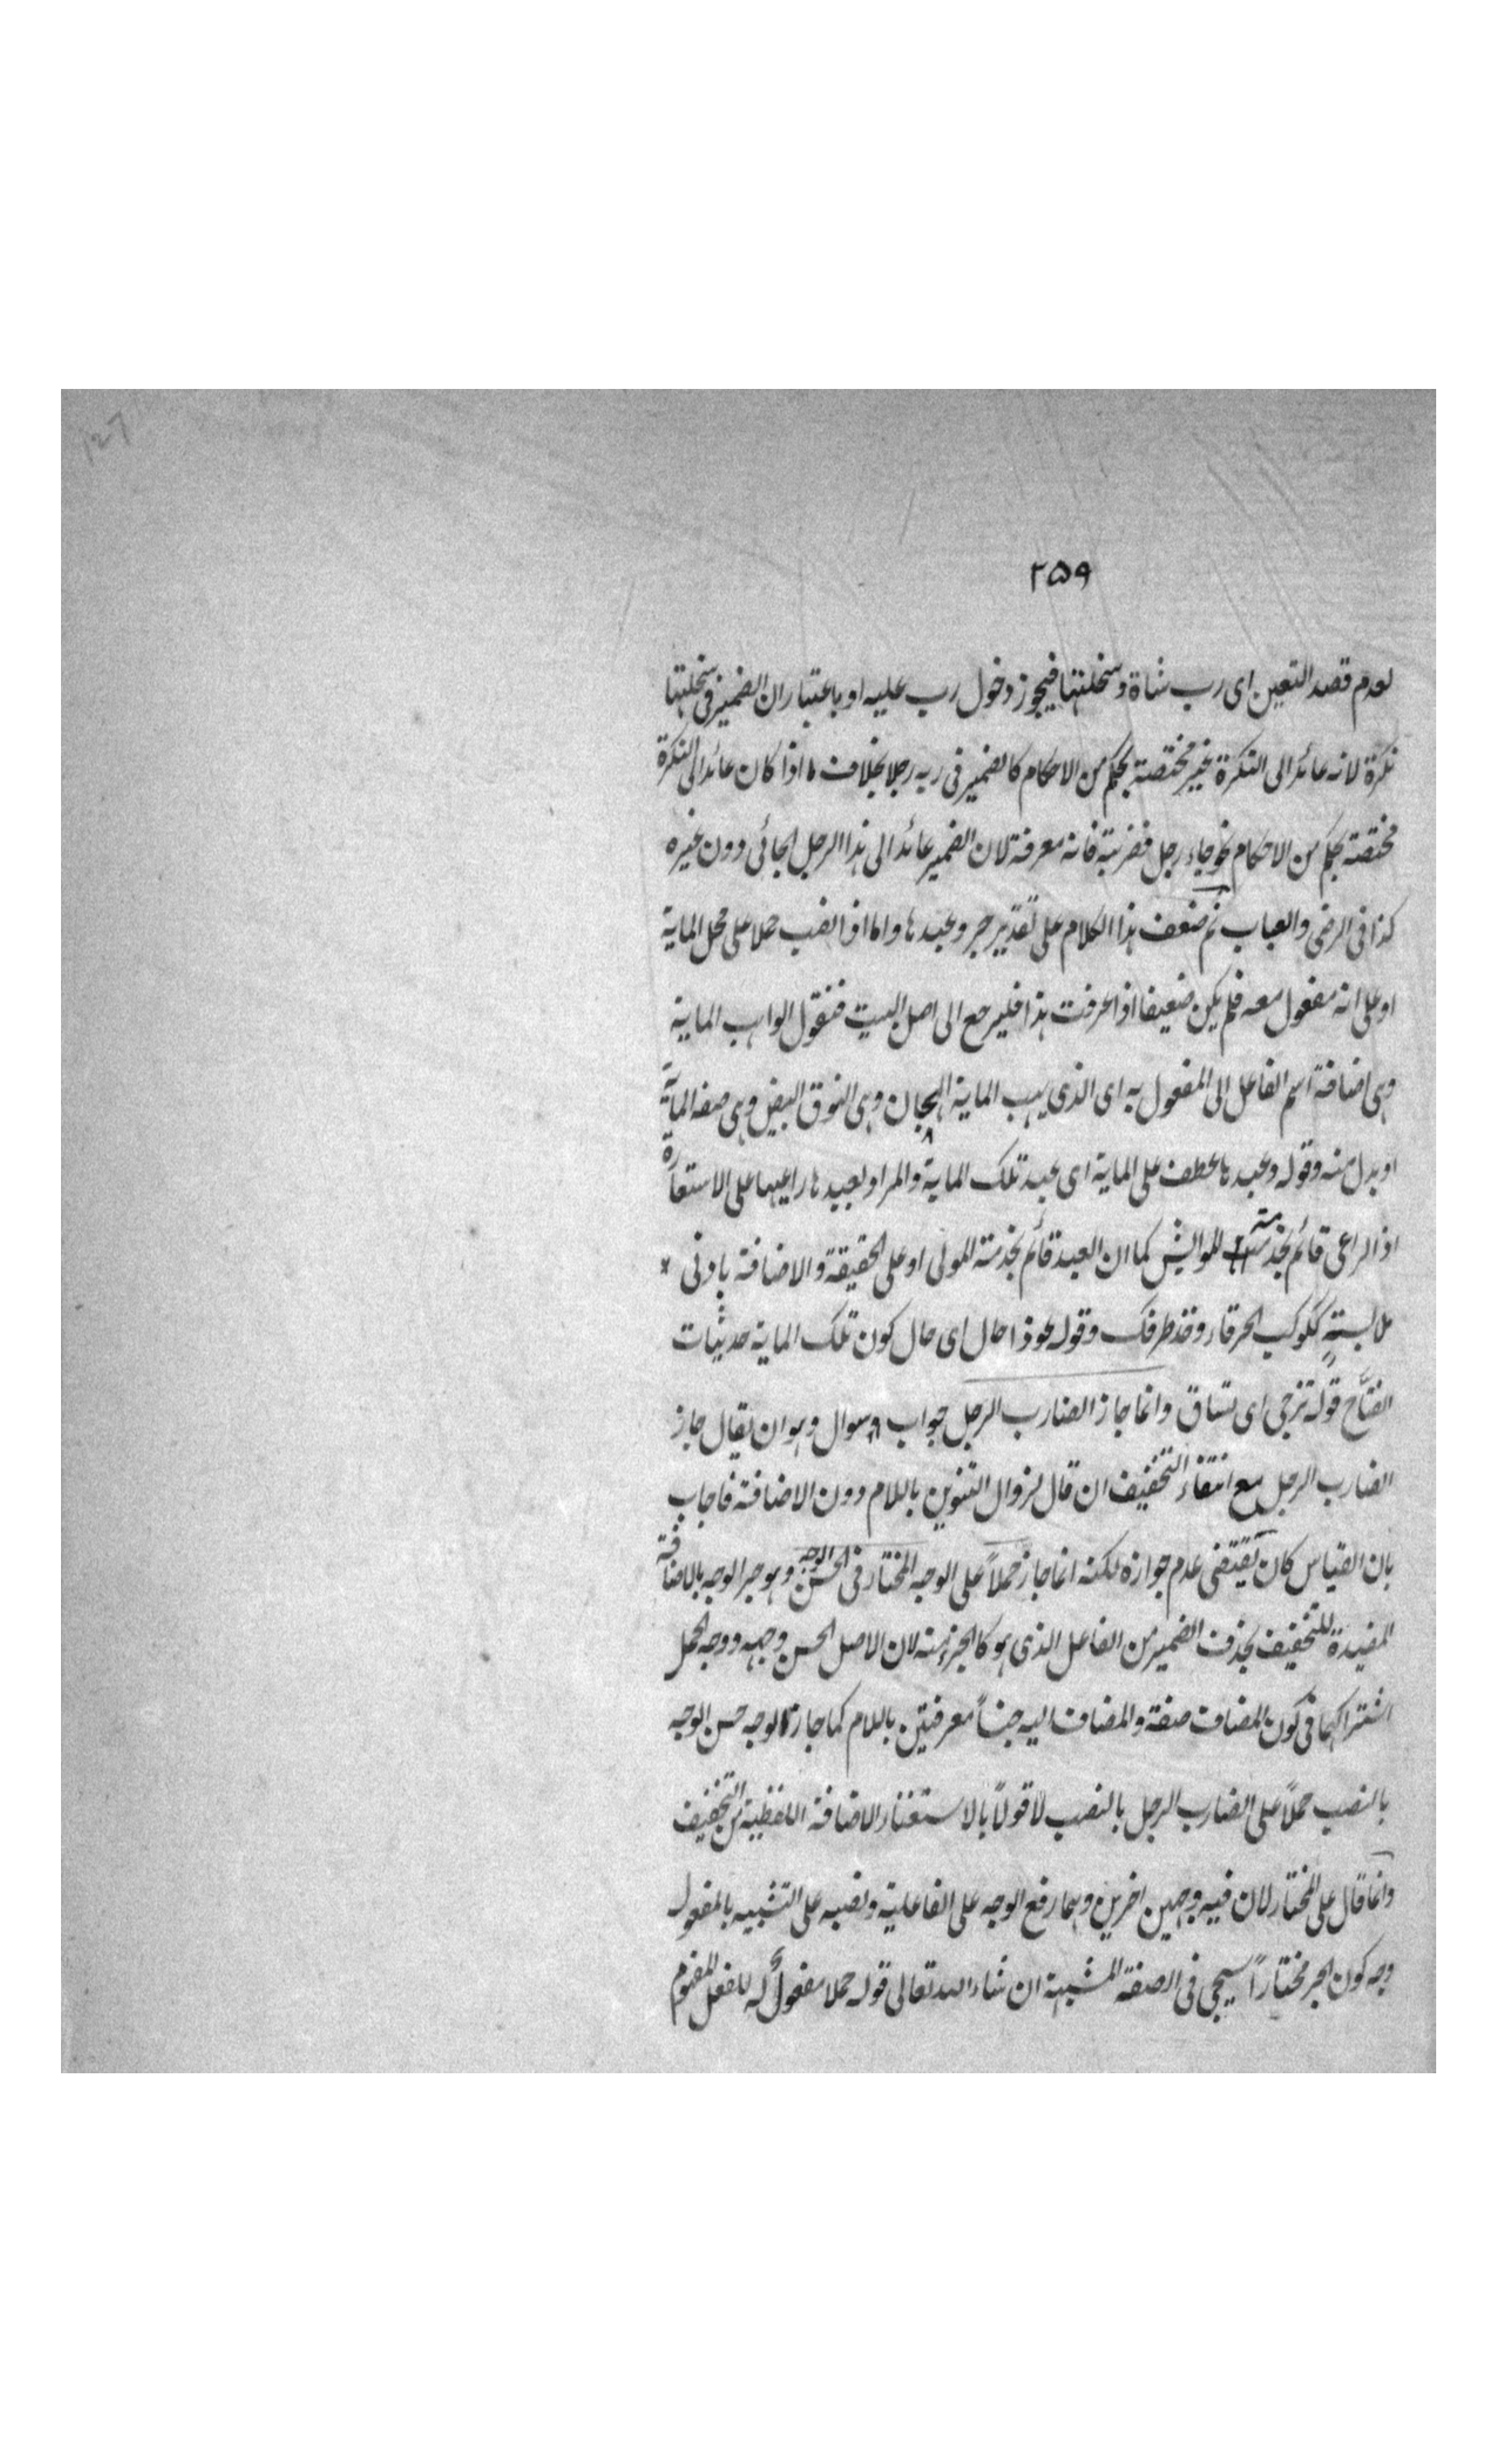 ۲۵۹
لعدم قصد التعين اى رب شاة وسخلتها فيجوز دخول رب عليه او باعتبار ان الضمير فى سخلتها
نكرة لانه عائد الى النكرة غير مختصة بحكم من الاحكام كالضمير فى ربه رجلا بخلاف ما اذا كان عائد الى النكرة
مختصة بحكم من الاحكام نحو جاء رجل فضربته فانه معرفة لان الضمير عائد الى هذا الرجل الجائى دون غيره
كذا فى الرضى والعباب ثم ضعف هذا الكلام على تقدير جر وعبدها واما اذا نصب حملا على محل الماية
او على انه مفعول معه فلم يكن ضعيفا اذا عرفت هذا فليرجع الى اصل البيت فنقول الواهب الماية
وهى اضافة اسم الفاعل الى المفعول به اى الذى يهب الماية الهجان وهى النوق البيض وهى صفة الماية
او بدل منه وقوله وعبدها عطف على الماية اى عبد تلك الماية والمراد بعبيدها راعيها على الاستعارة
اذ الراعى قائم بخدمة للمواليش كما ان العبد قائم بخدمة المولى او على الحقيقة والاضافة بادنى *
ملابسة ككوكب الخرقاء وخذ طرفك وقوله عوذا حال اى حال كون تلك الماية حديثات
النتاج قوله تزجى اى تساق وانما جاز الضارب الرجل جواب سوال وهو ان يقال جاز
الضارب الرجل مع انتفاء التخفيف ان قال لزوال التنوين باللام دون الاضافة فاجاب
بان القياس كان يقتضى عدم جوازه لكنه انما جاز حملاً على الوجه المختار فى الحسن الوجه وهو جر الوجه بالاضافة
المفيدة للتخفيف بحذف الضمير من الفاعل الذى هو كالجزء منه لان الاصل الحسن وجهه ووجه الحمل
اشتراكهما فى كون المضاف صفة والمضاف اليه جنساً معرفتين باللام كما جاز الوجه حسن الوجه
بالنصب حملاً على الضارب الرجل بالنصب لا قولاً بالاستغناء الاضافة اللفظية من التخفيف
وانما قال على المختار لان فيه وجهين اخرين وهما رفع الوجه على الفاعلية ونصبه على التشبيه بالمفعول
وجه كون الجر مختاراً سيجى فى الصفة المشبهة ان شاء الله تعالى قوله حملا مفعول له للفعل المفهوم